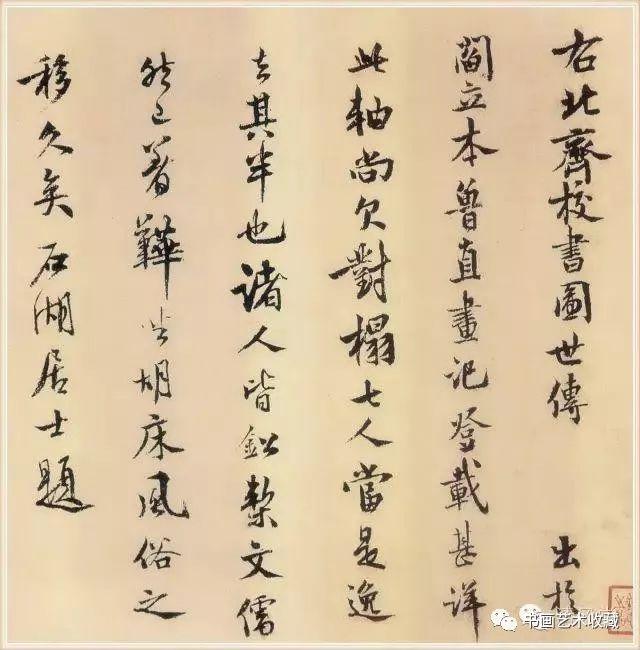 右北齊校書圖世傳出於
閻立本魯直畫記登載甚詳
此軸尚欠對榻七人當是逸
去其半也諸人皆鈆槧文儒
然已著鞾坐胡床風俗之
移久矣石湖居士題
书画艺术收藏